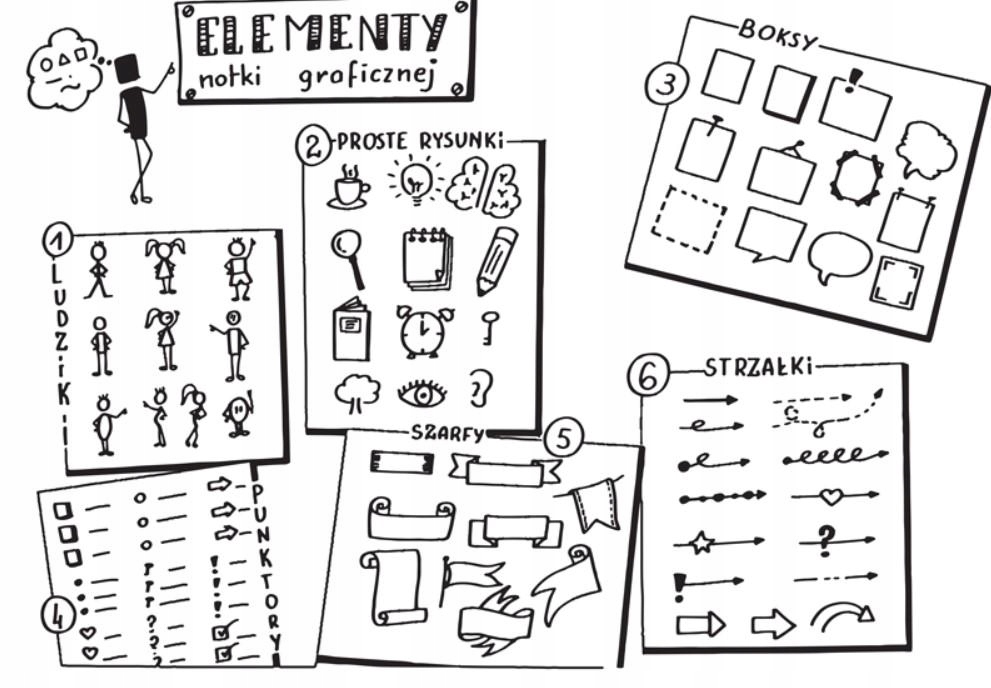 ELEMENTY
notki graficznej
1
LUDZiKi
2 PROSTE RYSUNKi
3 BOKSY
4
PUNKTORY
SZARFY 5
6 STRZAŁKi